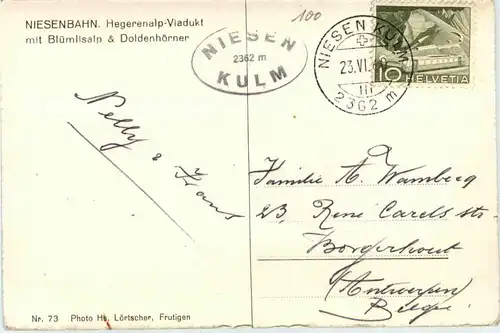 NIESENBAHN. Hegerenalp-Viadukt
mit Blümlisalp & Doldenhörner
100
NIESEN
2362 m
KULM
NIESEN KULM
23.VI.
III
2362 m
10 HELVETIA
Nelly & Frans
Familie A. Wambecq
23, René Carels str.
Borgerhout
(Antwerpen)
België
Nr. 73 Photo Hs. Lörtscher, Frutigen